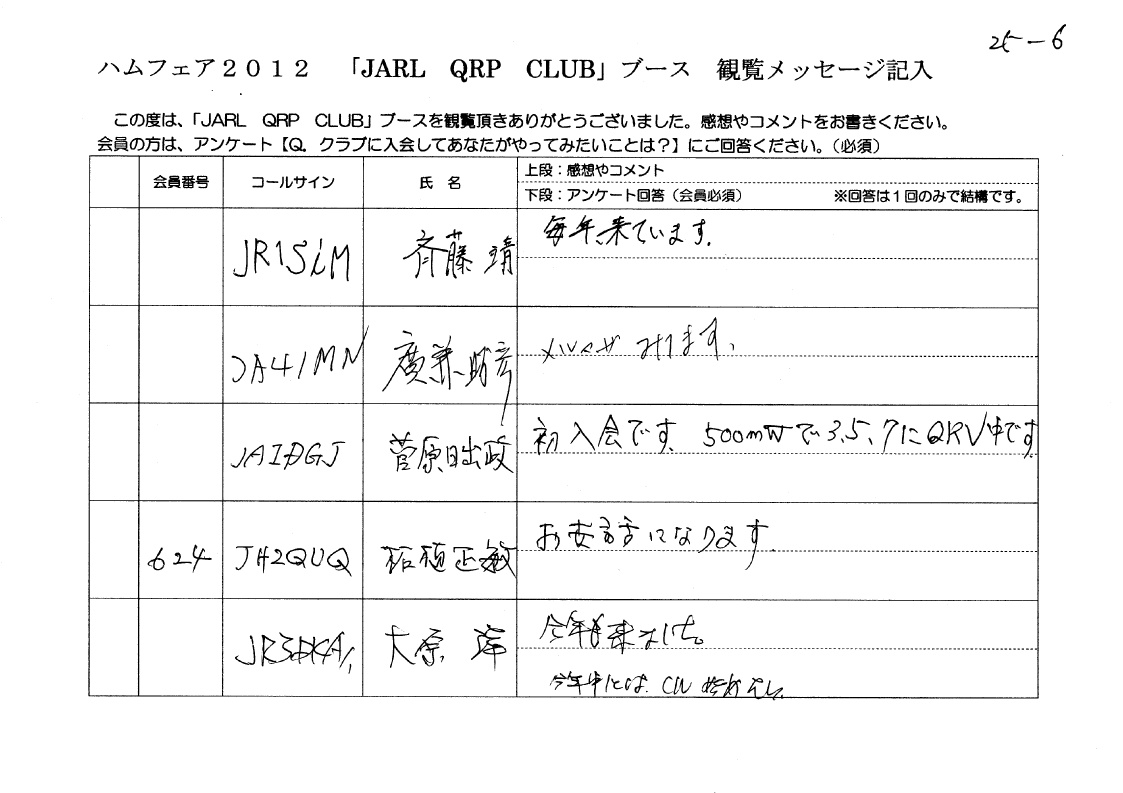 25-6
ハムフェア2012 「JARL QRP CLUB」ブース 観覧メッセージ記入
この度は、「JARL QRP CLUB」ブースを観覧頂きありがとうございました。感想やコメントをお書きください。
会員の方は、アンケート【Q. クラブに入会してあなたがやってみたいことは?】にご回答ください。(必須)
会員番号 コールサイン 氏名 上段:感想やコメント
下段:アンケート回答(会員必須) ※回答は1回のみで結構です。
JR1SiM 斉藤 靖 毎年、来ています。
JA41MN 廣兼 みてます、
JA1DGJ 菅原日出政 初入会です。500mWで3.5、7にQRV中です
624 JH2QUQ 稲垣正敏 お世話になります。
大原 今年も来ました。
今年中には CW